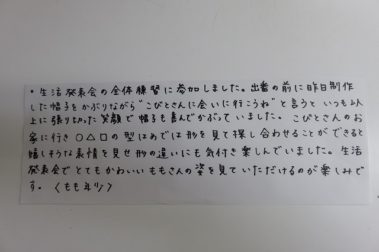 ・生活発表会の全体練習に参加しました。出番の前に昨日制作
した帽子をかぶりながら"こびとさんに会いに行こうね"と言うと いつも以
上に張り切った笑顔で帽子も喜んでかぶっていました。こびとさんのお
家に行き ○△□の型はめでは形を見て探し合わせることができると
嬉しそうな表情を見せ形の違いにも気付き楽しんでいました。生活
発表会でとてもかわいいももさんの姿を見ていただけるのが楽しみで
す。